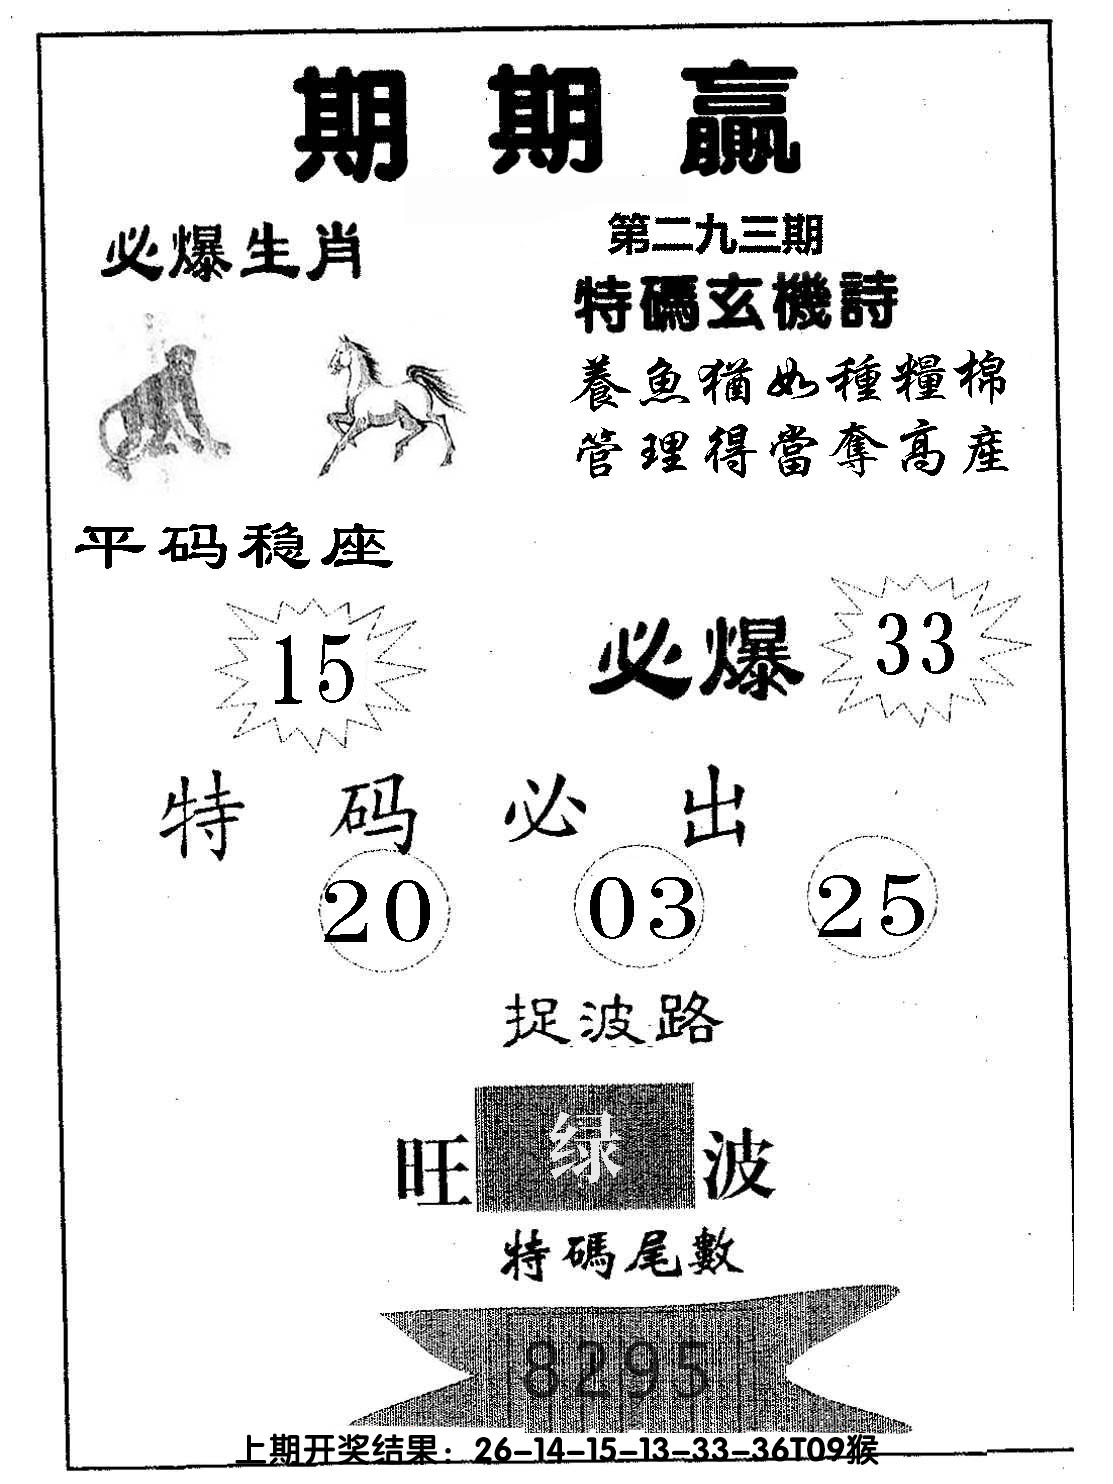 期期贏
必爆生肖
第二九三期
特碼玄機詩
養魚猶如種糧棉
管理得當奪高產
平码稳座
15
必爆
33
特码必出
20 03 25
捉波路
旺 绿 波
特碼尾數
8295
上期开奖结果：26-14-15-13-33-36T09猴